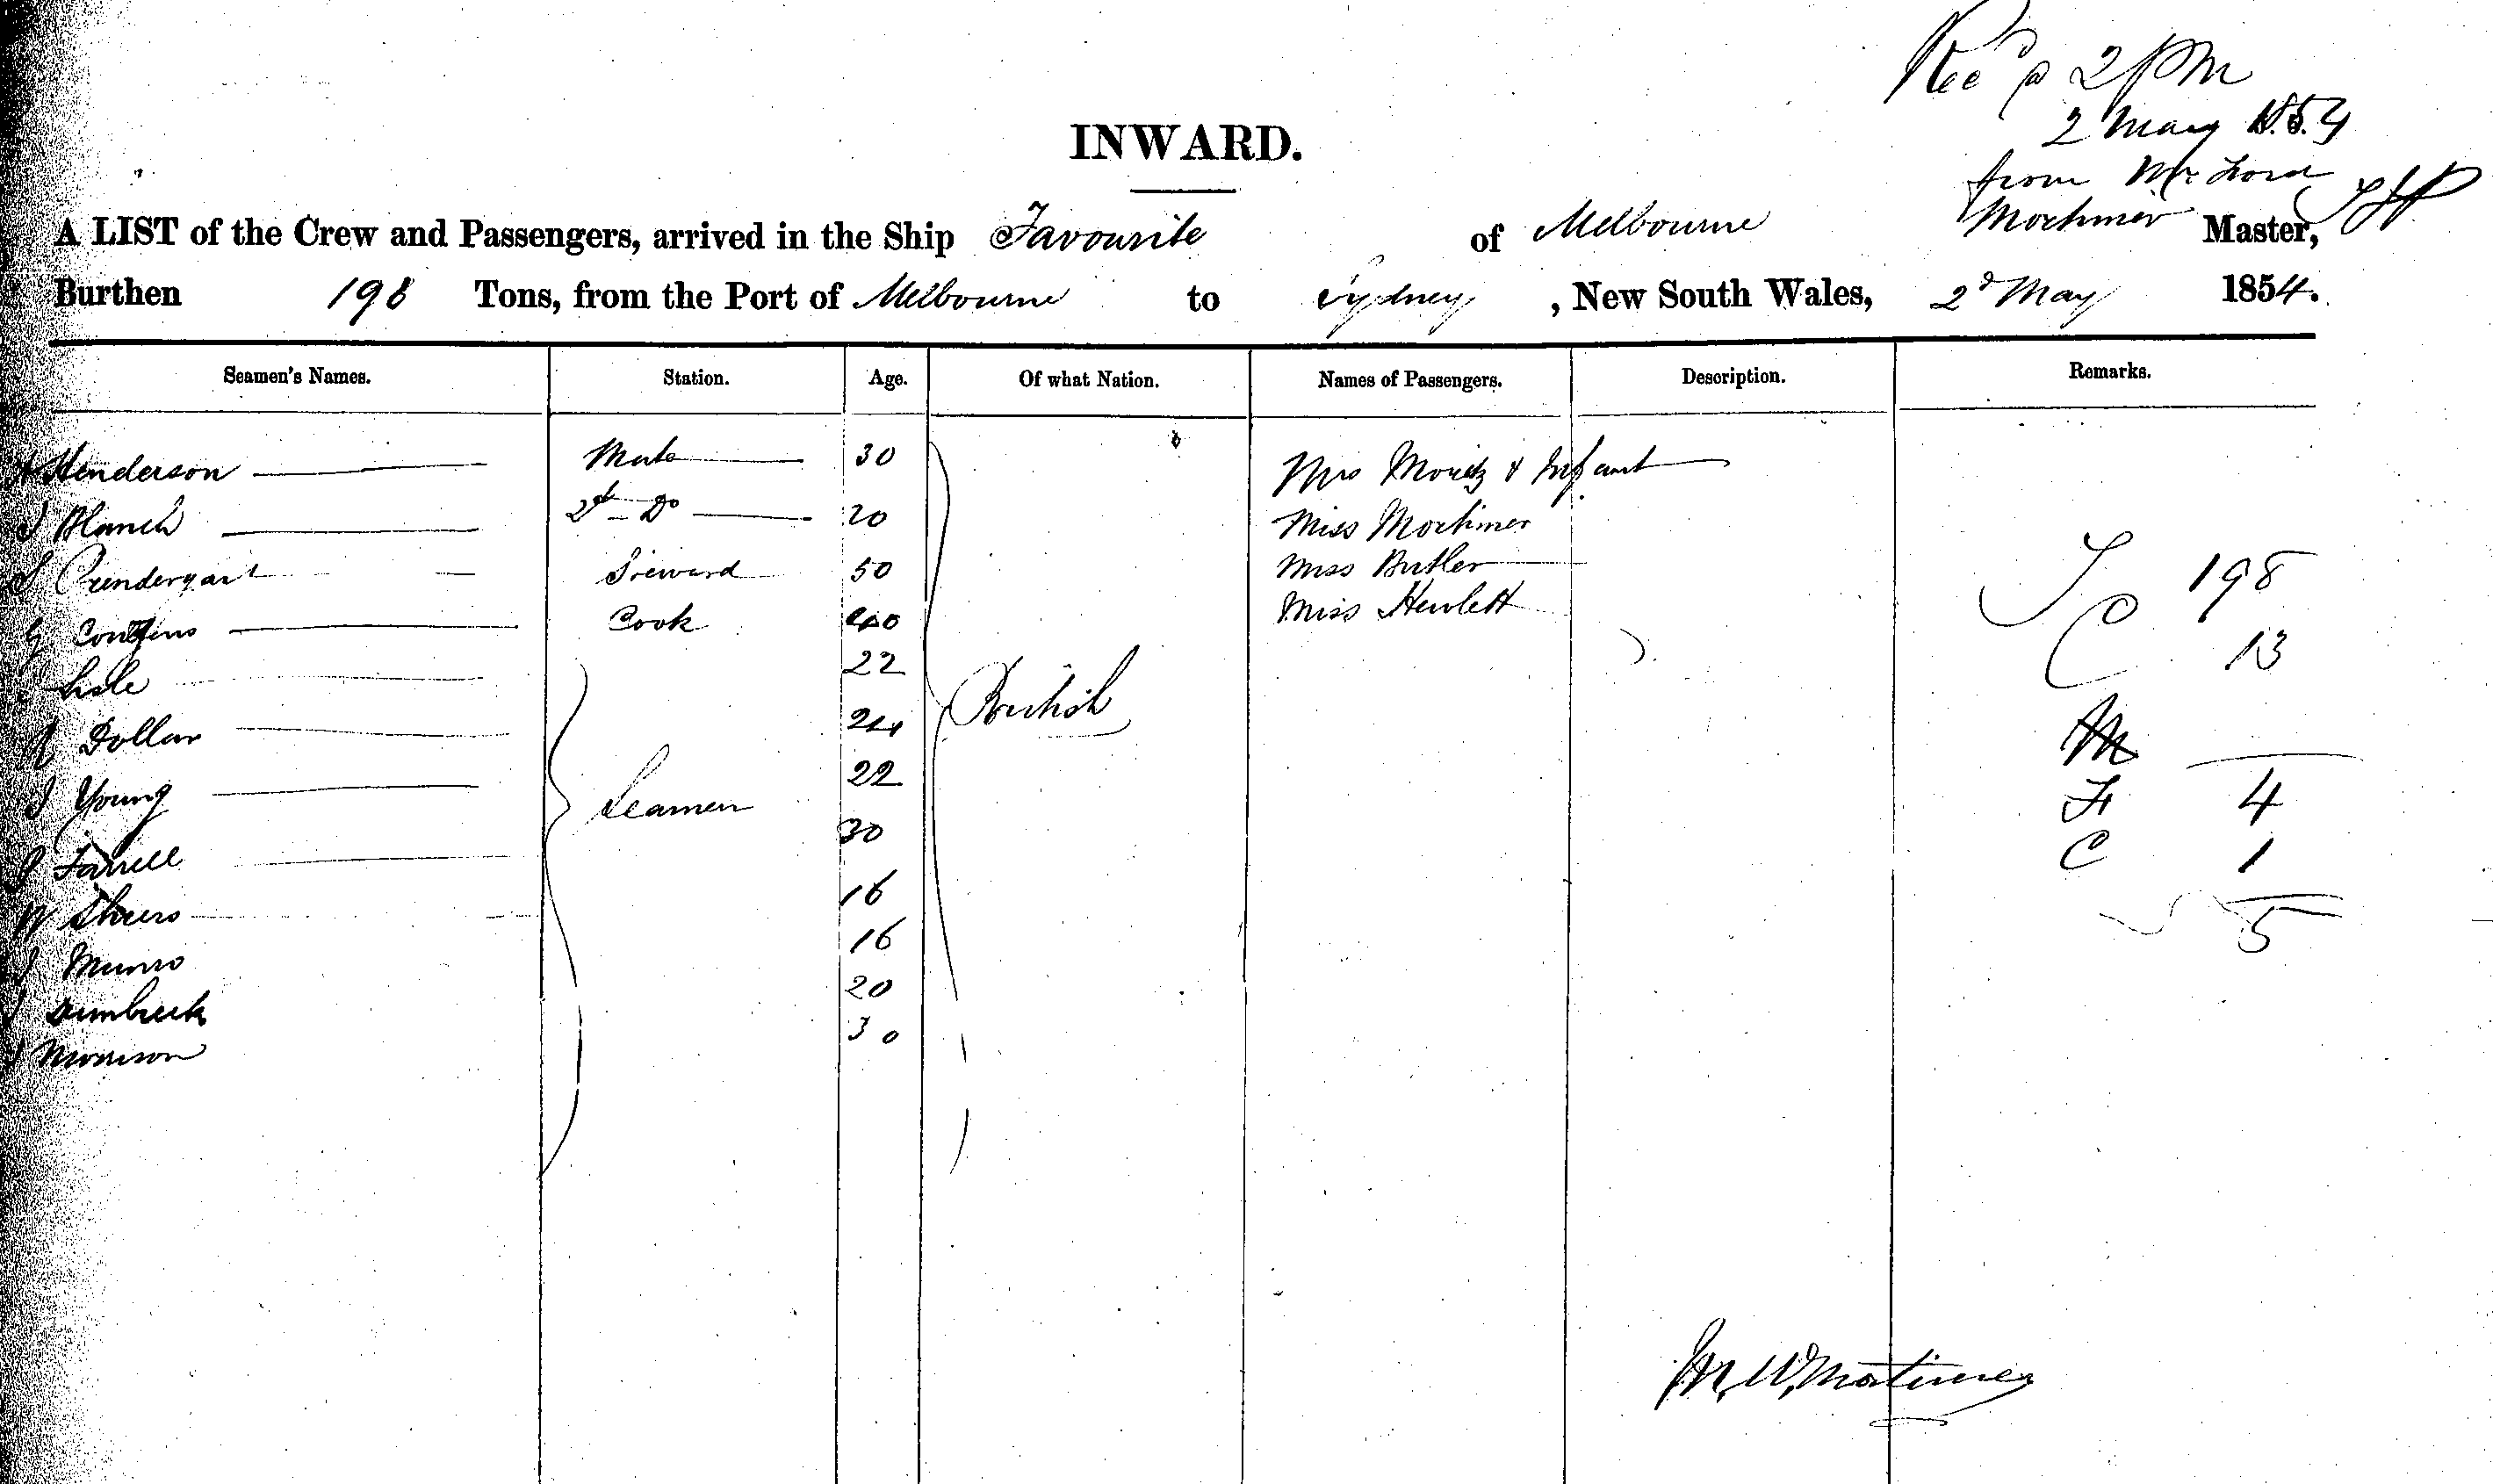 Rec @ 2 PM
2 May 1854
from Mr. Lord
INWARD.
A LIST of the Crew and Passengers, arrived in the Ship Favourite of Melbourne Mortimer Master,
Burthen 198 Tons, from the Port of Melbourne to Sydney, New South Wales, 2d May 1854.
Seamen's Names. Station. Age. Of what Nation. Names of Passengers. Description. Remarks.
Henderson Mate 30 Mrs Moritz & Infant
J Blanch 2d Do 20 Miss Mortimer
Prendergast Steward 50 Miss Butler T 198
G Cook 40 Miss Hewlett C 13
Lisle 22 British
Dollar 24 M
J Young Seamen 22 F 4
Farrell 30 C 1
W Sheers 16 5
J Munro 16
Dumbreck 20
Morrison 30
W. Mortimer